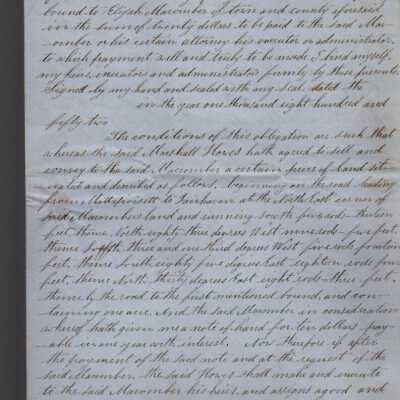 bound to Elijah Macomber of town and county aforesaid
in the sum of twenty dollars to be paid to the said Mac-
omber or his certain attorney his executor or administrator
to which payment well and truly to be made I bind myself
my heirs, executors and administrators firmly by these presents.
Signed by my hand and sealed with my seal. dated the
in the year one thousand eight hundred and
fifty two
The conditions of this obligation are such that
whereas the said Marshall Howes hath agreed to sell and
convey to the said Macomber a certain piece of land sit-
uated and described as follows. beginning on the road leading
from to Fairhaven at the North East corner of
said Macombers land and running South five rods thirteen
feet, thence North eighty three degrees West nine rods five feet,
thence South three and one third degrees West five rods fourteen
feet, thence South eighty five degrees East eighteen rods four
feet, thence North thirty degrees East eight rods three feet.
thence by the road to the first mentioned bound, and con-
taining one acre. And the said Macomber in consideration
whereof hath given me a note of hand for ten dollars pay-
able in one year with interest. Now therefore if after
the payment of the said note and at the request of the
said Macomber. the said Howes shall make and execute
to the said Macomber his heirs and assigns a good and